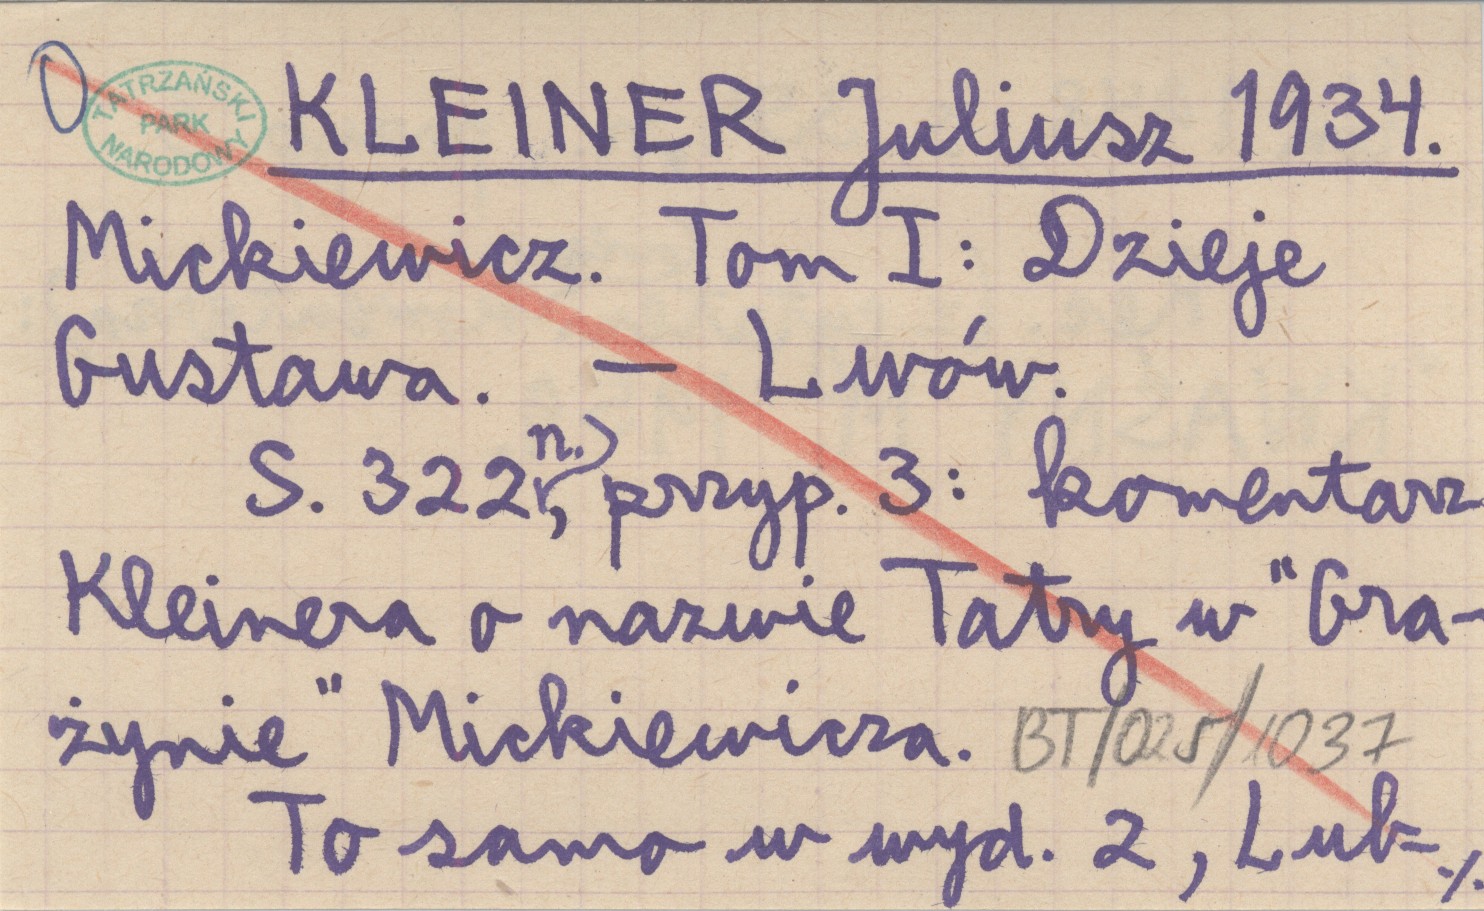 TATRZAŃSKI
PARK
NARODOWY
KLEINER Juliusz 1934.
Mickiewicz. Tom I: Dzieje
Gustawa. — Lwów.
S. 322n., przyp. 3: komentarz
Kleinera o nazwie Tatry w "Gra-
żynie" Mickiewicza. BT/025/1037
To samo w wyd. 2, Lub-
./.